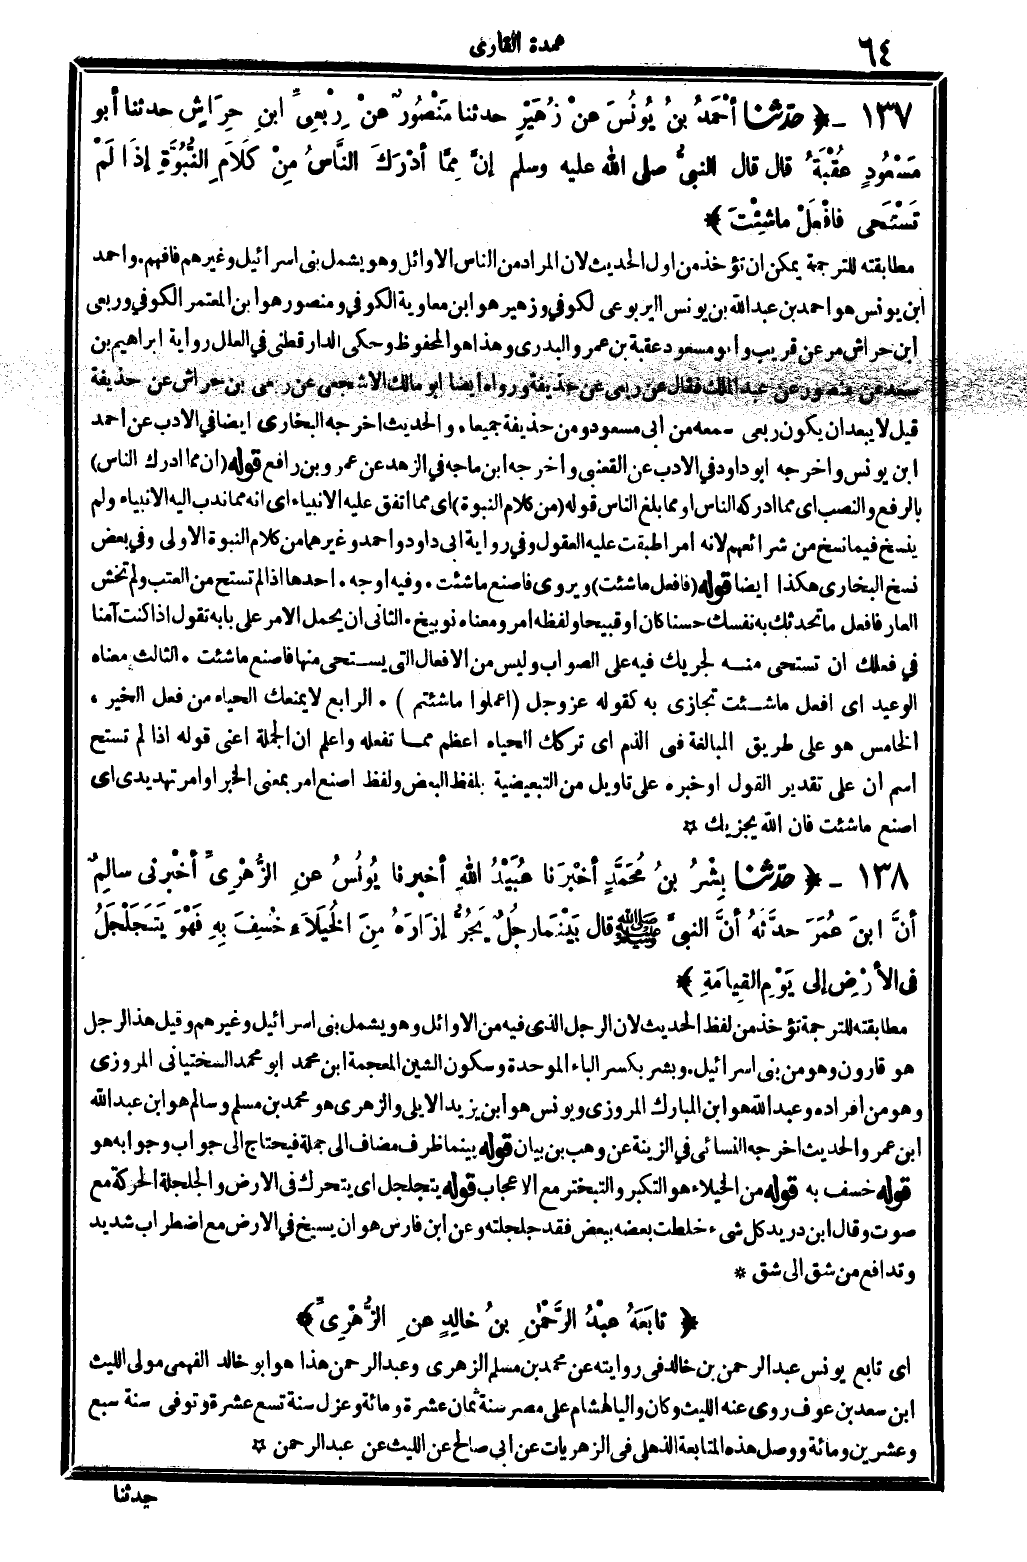 ٦٤
عمدة القارى
١٣٧ ـ ﴿ حَدَّثَنَا أَحْمَدُ بنُ يُونُسَ عنْ زُهَيْرٍ حدثنا مَنْصُورٌ عنْ رِبْعِيِّ ابنِ حِرَاشٍ حدثنا أبو
مَسْعُودٍ عُقْبَةُ قال قال النبيُّ صلى الله عليه وسلم إنَّ مِمَّا أدْرَكَ النَّاسُ مِنْ كَلَامِ النُّبُوَّةِ إذَا لَمْ
تَسْتَحِي فافْعَلْ ماشِئْتَ ﴾
مطابقته للترجمة يمكن ان تؤخذ من اول الحديث لان المراد من الناس الاوائل وهو يشمل بنى اسرائيل وغيرهم فافهم . واحمد
ابن يونس هو احمد بن عبدالله بن يونس اليربوعى لكوفي وزهير هو ابن معاوية الكوفي ومنصور هو ابن المعتمر الكوفي وربعى
ابن حراش مر عن قريب وأبو مسعود عقبة بن عمرو البدرى وهذا هو المحفوظ وحكى الدارقطنى في العلل رواية ابراهيم بن
سعد عن منصور عن عبدالملك فقال عن ربعى عن حذيفة ورواه ايضا ابو مالك الاشجعى عن ربعى بن حراش عن حذيفة
قيل لا يبعد ان يكون ربعى سمعه من ابى مسعود ومن حذيفة جميعا . والحديث اخرجه البخارى ايضا في الادب عن احمد
ابن يونس واخرجه ابو داود في الادب عن القعنبى واخرجه ابن ماجه في الزهد عن عمرو بن رافع قوله (ان مما ادرك الناس)
بالرفع والنصب اى مما ادركه الناس او مما بلغ الناس قوله (من كلام النبوة) اى مما اتفق عليه الانبياء اى انه مما ندب اليه الانبياء ولم
ينسخ فيما نسخ من شرائعهم لانه امر اطبقت عليه العقول وفي رواية ابى داود واحمد وغيرهما من كلام النبوة الاولى وفي بعض
نسخ البخارى هكذا ايضا قوله (فافعل ماشئت) ويروى فاصنع ماشئت . وفيه اوجه . احدها اذا لم تستح من العتب ولم تخش
العار فافعل ما تحدثك به نفسك حسنا كان او قبيحا ولفظه امر ومعناه توبيخ . الثانى ان يحمل الامر على بابه تقول اذا كنت آمنا
في فعلك ان تستحى منـــه لجريك فيه على الصواب وليس من الافعال التى يستحى منها فاصنع ماشئت . الثالث معناه
الوعيد اى افعل ماشئت تجازى به كقوله عز وجل (اعملوا ماشئتم) . الرابع لا يمنعك الحياء من فعل الخير .
الخامس هو على طريق المبالغة فى الذم اى تركك الحياء اعظم ممـــا تفعله واعلم ان الجملة اعنى قوله اذا لم تستح
اسم ان على تقدير القول او خبره على تاويل من التبعيضية بلفظ البعض ولفظ اصنع امر بمعنى الخبر او امر تهديدى اى
اصنع ماشئت فان الله يجزيك ☆
١٣٨ ـ ﴿ حَدَّثَنَا بِشْرُ بنُ مُحَمَّدٍ أخْبَرَنا عُبَيْدُ اللهِ أخبرنا يُونُسُ عنِ الزُّهْرِيِّ أخْبرنى سالِمٌ
أنَّ ابنَ عُمَرَ حدثَهُ أنَّ النبيَّ ﷺ قال بَيْنَمَا رجُلٌ يَجُرُّ إزَارَهُ مِنَ الخُيَلَاءِ خُسِفَ بِهِ فَهْوَ يَتَجَلْجَلُ
فى الأرْضِ إلى يَوْمِ القِيامَةِ ﴾
مطابقته للترجمة تؤخذ من لفظ الحديث لان الرجل الذى فيه من الاوائل وهو يشمل بنى اسرائيل وغيرهم وقيل هذ الرجل
هو قارون وهو من بنى اسرائيل . وبشر بكسر الباء الموحدة وسكون الشين المعجمة ابن محمد ابو محمد السختيانى المروزى
وهو من افراده وعبدالله هو ابن المبارك المروزى ويونس هو ابن يزيد الايلى والزهرى هو محمد بن مسلم وسالم هو ابن عبدالله
ابن عمر والحديث اخرجه النسائى في الزينة عن وهب بن بيان قوله بينما ظرف مضاف الى جملة فيحتاج الى جواب وجوابه هو
قوله خسف به قوله من الخيلاء هو التكبر والتبختر مع الاعجاب قوله يتجلجل اى يتحرك فى الارض والجلجلة الحركة مع
صوت وقال ابن دريد كل شىء خلطت بعضه ببعض فقد جلجلته وعن ابن فارس هو ان يسيخ في الارض مع اضطراب شديد
وتدافع من شق الى شق *
﴿ تابَعَهُ عبْدُ الرَّحْمٰنِ بنُ خالِدٍ عنِ الزُّهْرِيِّ ﴾
اى تابع يونس عبدالرحمن بن خالد فى روايته عن محمد بن مسلم الزهرى وعبدالرحمن هذا هو ابو خالد الفهمى مولى الليث
ابن سعد بن عوف روى عنه الليث وكان واليا لهشام على مصر سنة ثمان عشرة ومائة وعزل سنة تسع عشرة وتوفى سنة سبع
وعشرين ومائة ووصل هذه المتابعة الذهلى فى الزهريات عن ابى صالح عن الليث عن عبدالرحمن ☆
حدثنا